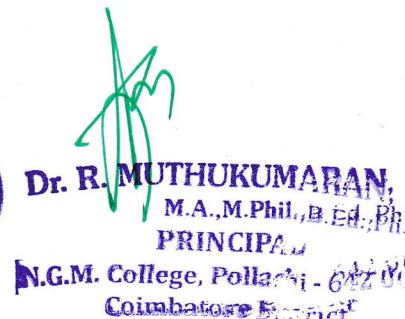 Dr. R. MUTHUKUMARAN,
M.A.,M.Phil.,B.Ed.,Ph.
PRINCIPAL
N.G.M. College, Pollachi - 642
Coimbatore District